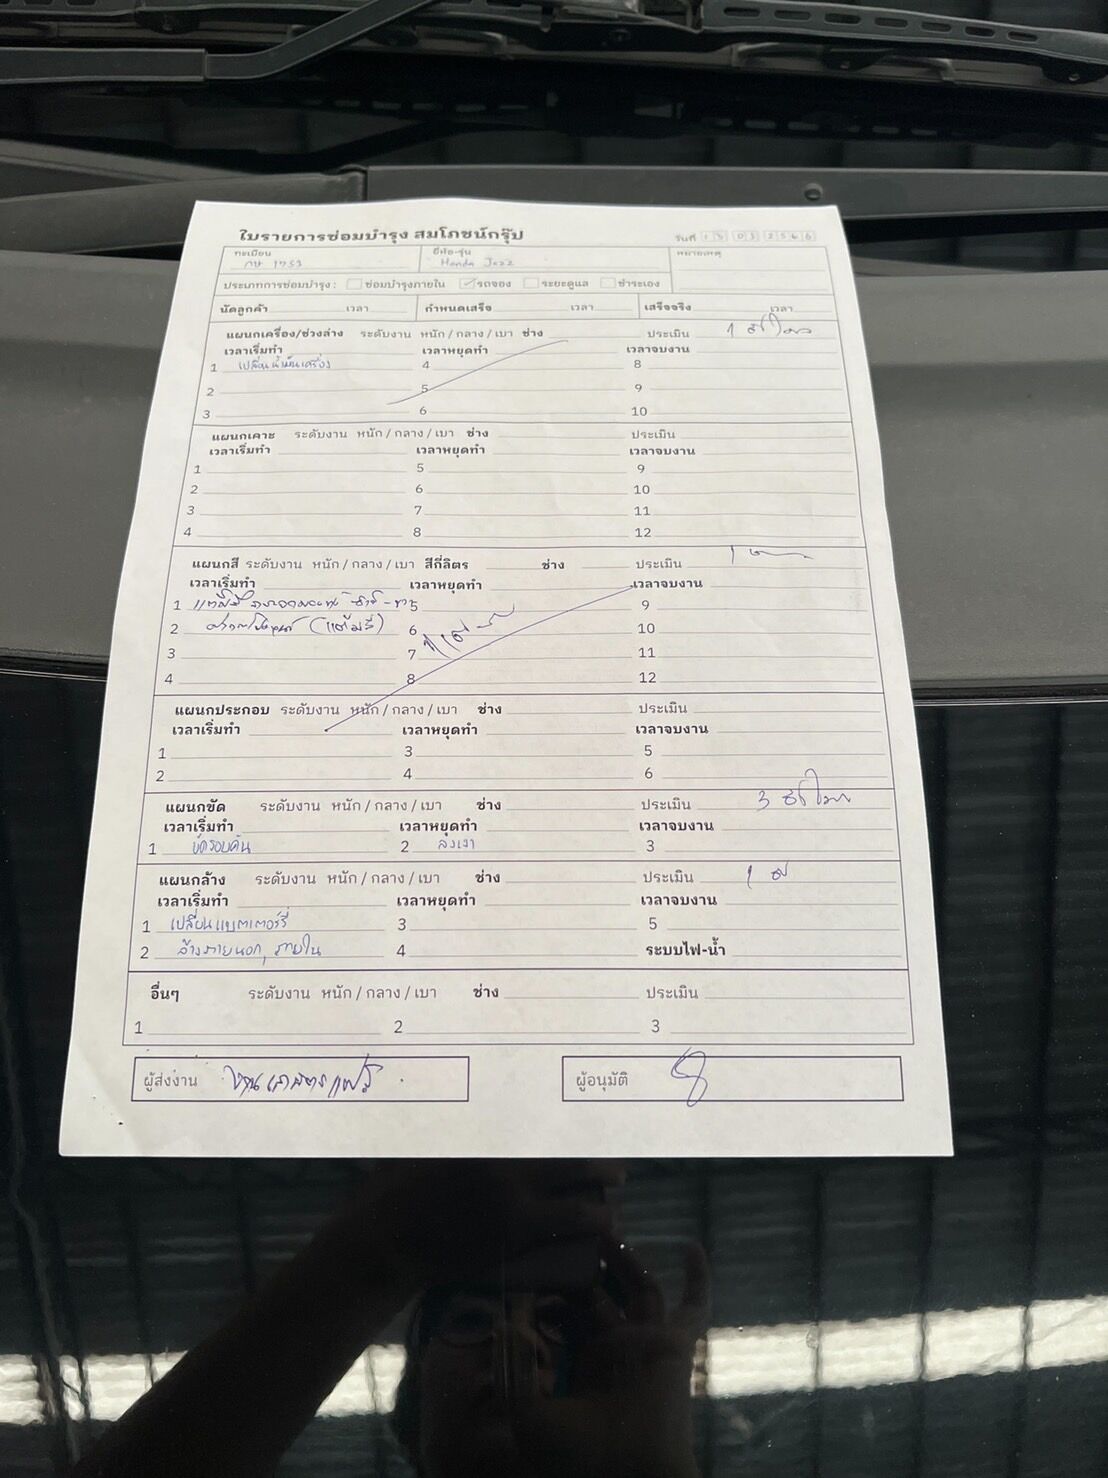 ใบรายการซ่อมบำรุง สมโภชน์กรุ๊ป วันที่ 03 2566
ทะเบียน ยี่ห้อ-รุ่น หมายเหตุ
กษ 1753 Honda Jazz
ประเภทการซ่อมบำรุง : ซ่อมบำรุงภายใน รถจอง ระยะดูแล ชำระเอง
นัดลูกค้า เวลา กำหนดเสร็จ เวลา เสร็จจริง เวลา
แผนกเครื่อง/ช่วงล่าง ระดับงาน หนัก / กลาง / เบา ช่าง ประเมิน 1 ชั่วโมง
เวลาเริ่มทำ เวลาหยุดทำ เวลาจบงาน
1 เปลี่ยนน้ำมันเครื่อง 4 8
2 5 9
3 6 10
แผนกเคาะ ระดับงาน หนัก / กลาง / เบา ช่าง ประเมิน
เวลาเริ่มทำ เวลาหยุดทำ เวลาจบงาน
1 5 9
2 6 10
3 7 11
4 8 12
แผนกสี ระดับงาน หนัก / กลาง / เบา สีกี่ลิตร ช่าง ประเมิน 1
เวลาเริ่มทำ เวลาหยุดทำ เวลาจบงาน
1 5 9
2 (แต้มสี) 6 10
3 7 11
4 8 12
แผนกประกอบ ระดับงาน หนัก / กลาง / เบา ช่าง ประเมิน
เวลาเริ่มทำ เวลาหยุดทำ เวลาจบงาน
1 3 5
2 4 6
แผนกขัด ระดับงาน หนัก / กลาง / เบา ช่าง ประเมิน 3 ชั่วโมง
เวลาเริ่มทำ เวลาหยุดทำ เวลาจบงาน
1 ขัดรอบคัน 2 ลงเงา 3
แผนกล้าง ระดับงาน หนัก / กลาง / เบา ช่าง ประเมิน 1 ช
เวลาเริ่มทำ เวลาหยุดทำ เวลาจบงาน
1 เปลี่ยนแบตเตอร์รี่ 3 5
2 ล้างภายนอก, ภายใน 4 ระบบไฟ-น้ำ
อื่นๆ ระดับงาน หนัก / กลาง / เบา ช่าง ประเมิน
1 2 3
ผู้ส่งงาน ผู้อนุมัติ